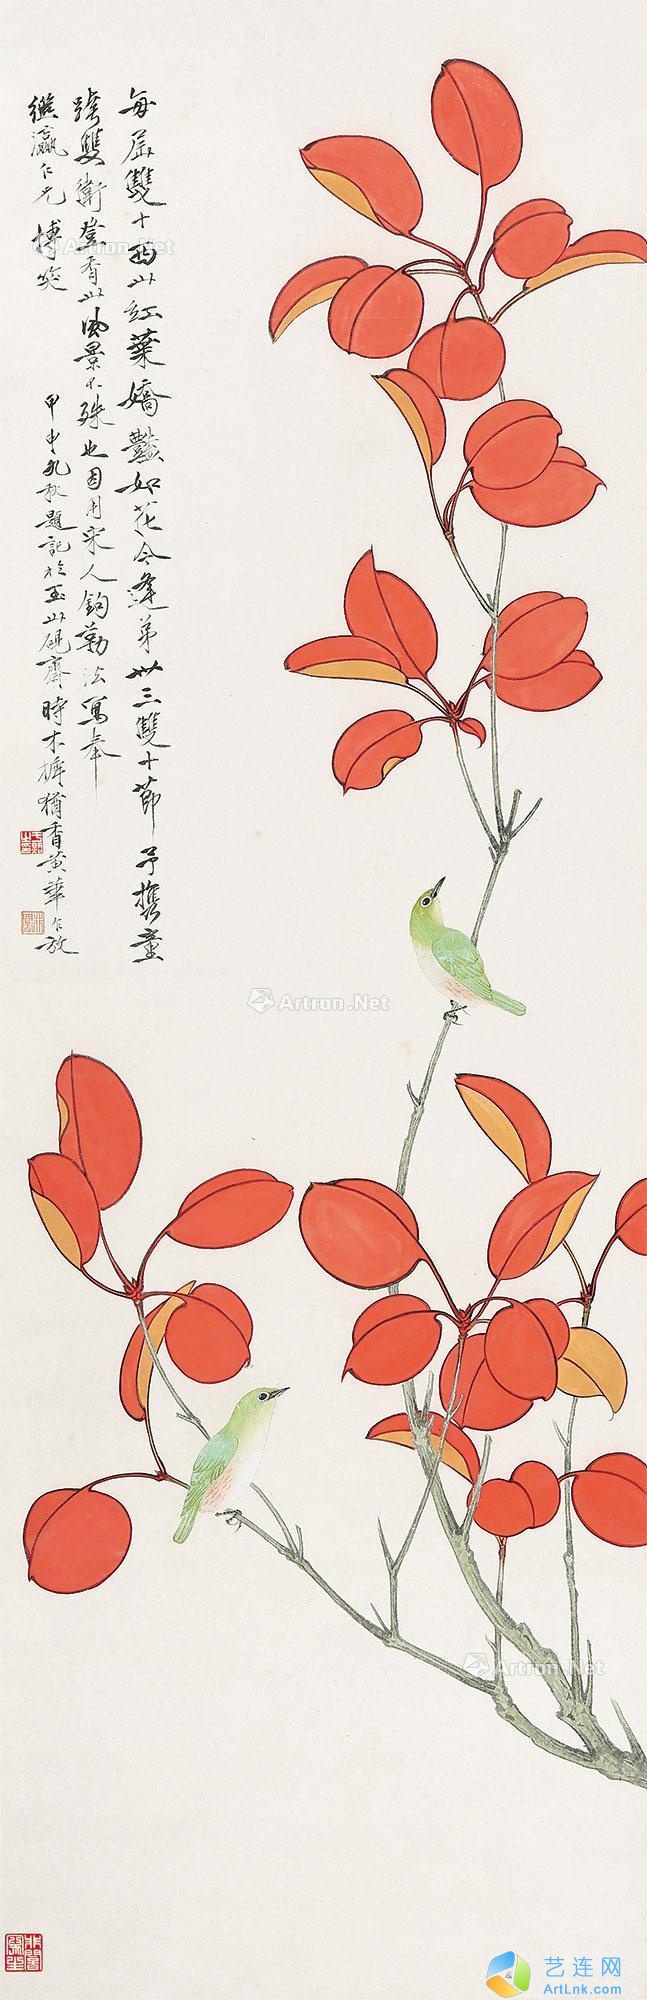 每届雙十西山紅葉嬌豔如花今逢第卅三雙十節予攜童
跨雙衛登香山風景不殊也因用宋人鉤勒法寫奉
繼瀛仁兄博笑
甲申九秋題記於玉山硯齋時木樨猶香黄華乍放
Artron.Net
Artron.Net
Artron.Net
Artron.Net
艺连网
ArtLink.com